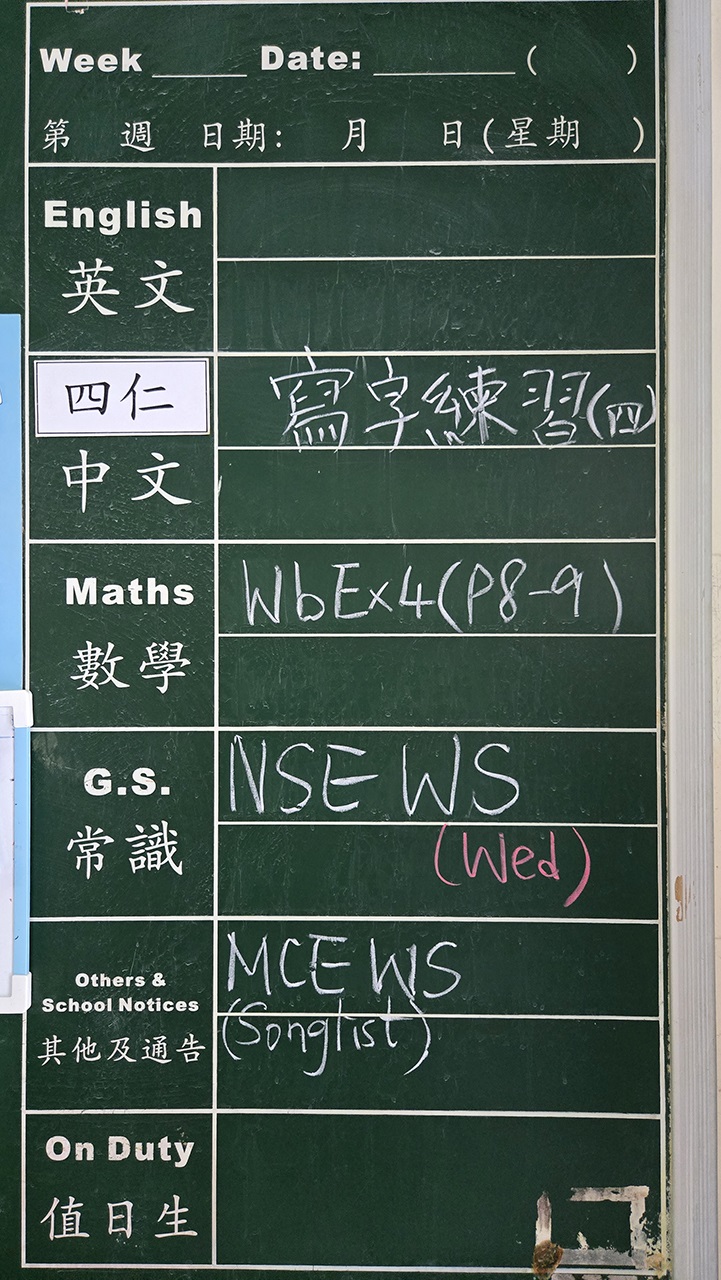 Week ______ Date: __________ (      )
第 週 日期: 月 日(星期 )
English
英文
四仁
寫字練習(四)
中文
Maths
WbEx4(P8-9)
數學
G.S.
NSE WS
常識
(Wed)
Others &
School Notices
MCE WS
其他及通告
(Songlist)
On Duty
值日生